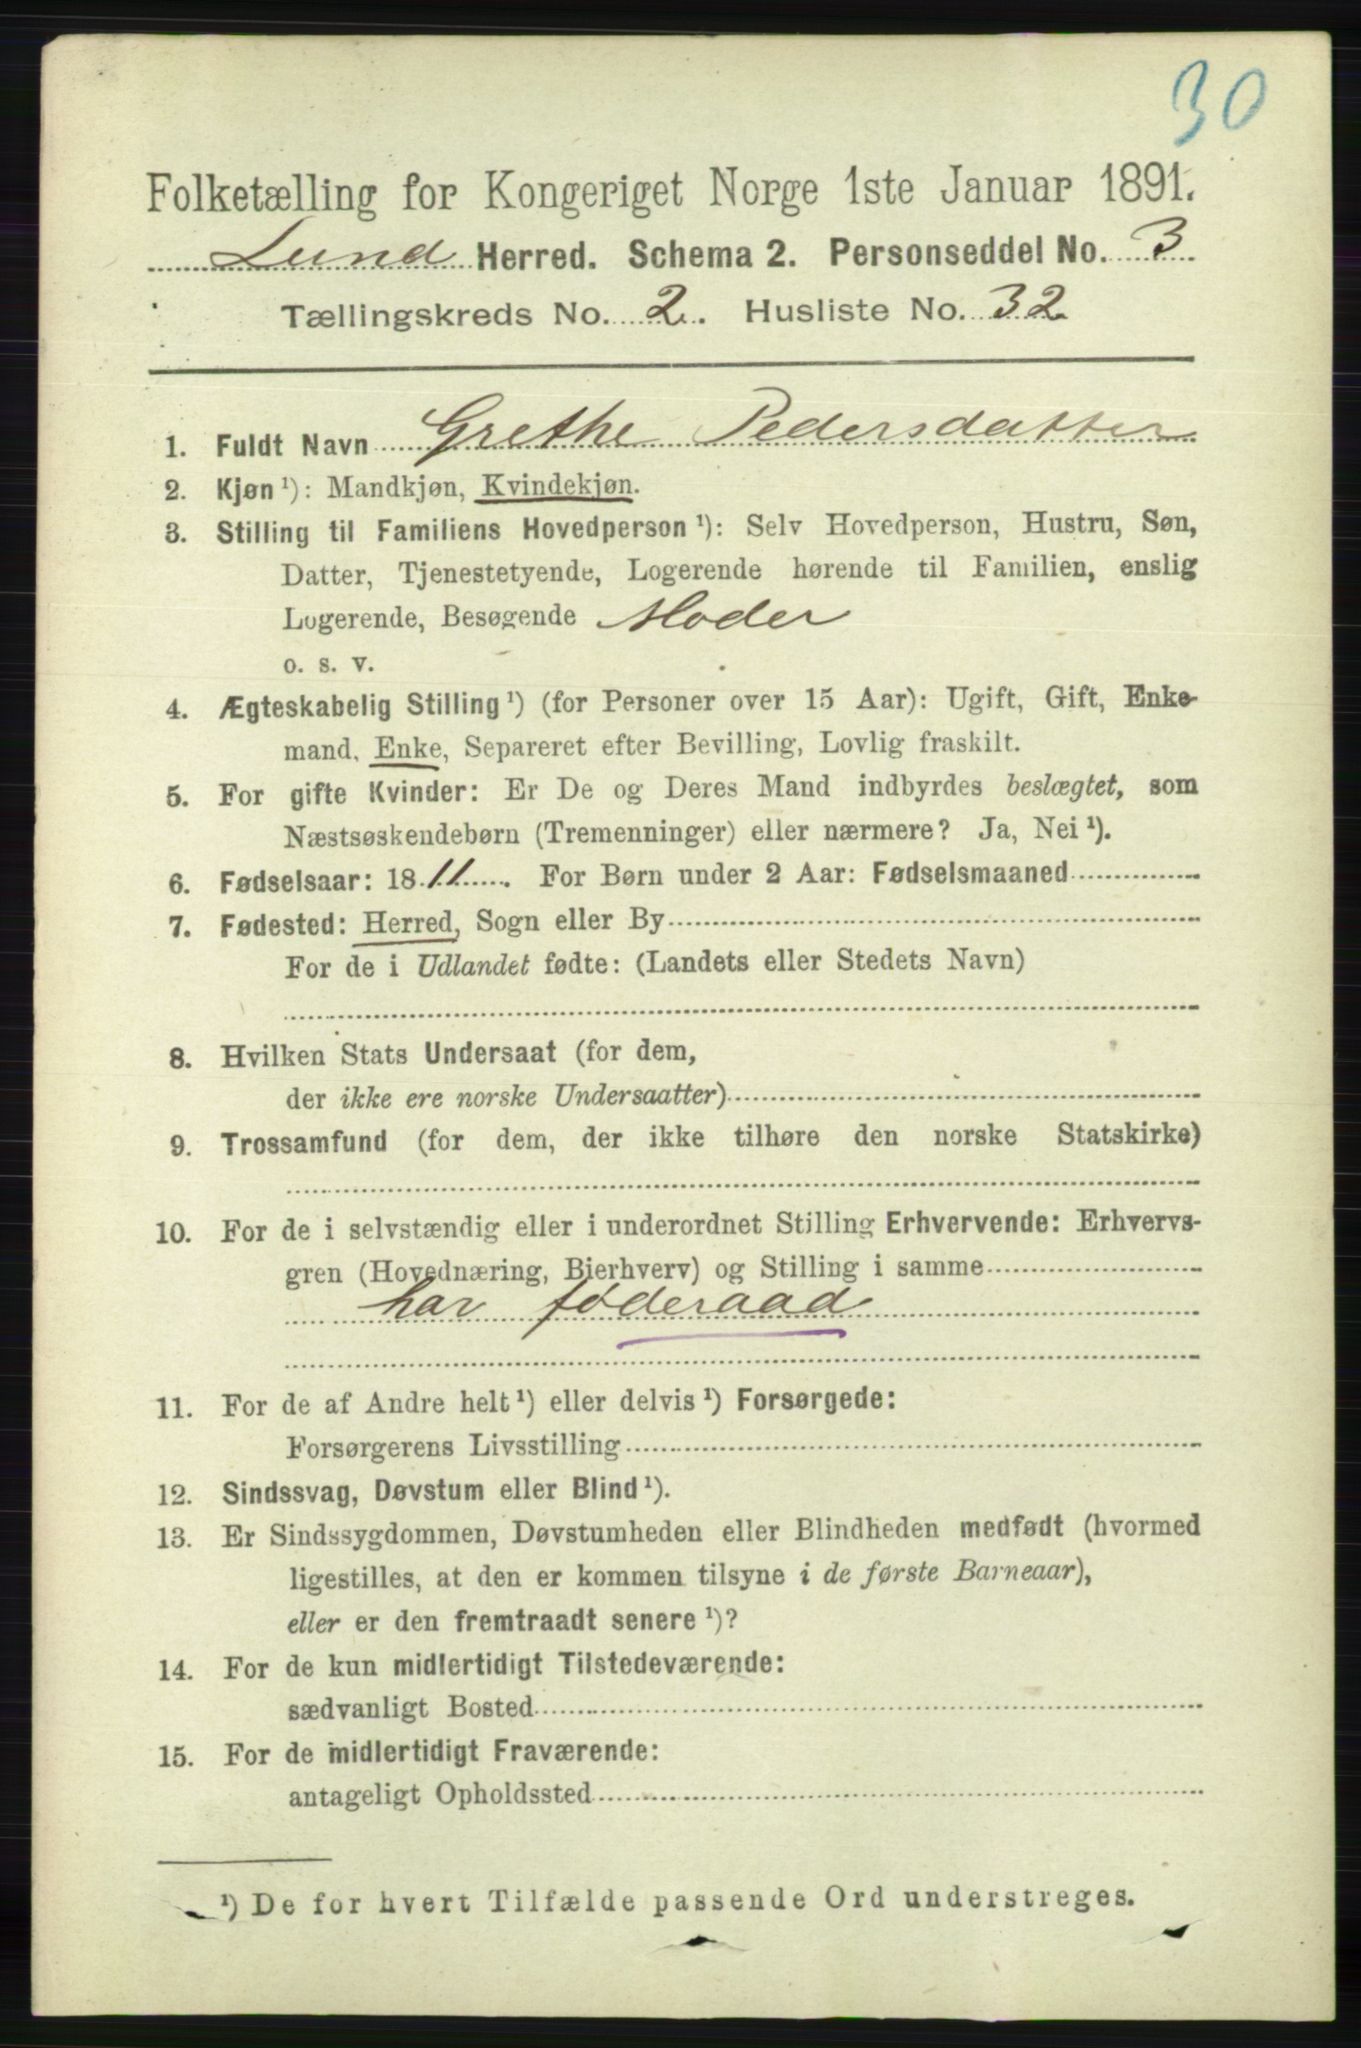 30
Folketælling for Kongeriget Norge 1ste Januar 1891.
Lund Herred. Schema 2. Personseddel No. 3
Tællingskreds No. 2. Husliste No. 32
1. Fuldt Navn Grethe Pedersdatter
2. Kjøn ¹): Mandkjøn, Kvindekjøn.
3. Stilling til Familiens Hovedperson ¹): Selv Hovedperson, Hustru, Søn,
Datter, Tjenestetyende, Logerende hørende til Familien, enslig
Logerende, Besøgende Moder
o. s. v.
4. Ægteskabelig Stilling ¹) (for Personer over 15 Aar): Ugift, Gift, Enke-
mand, Enke, Separeret efter Bevilling, Lovlig fraskilt.
5. For gifte Kvinder: Er De og Deres Mand indbyrdes beslægtet, som
Næstsøskendebørn (Tremenninger) eller nærmere? Ja, Nei ¹).
6. Fødselsaar: 1811. For Børn under 2 Aar: Fødselsmaaned
7. Fødested: Herred, Sogn eller By
For de i Udlandet fødte: (Landets eller Stedets Navn)
8. Hvilken Stats Undersaat (for dem,
der ikke ere norske Undersaatter)
9. Trossamfund (for dem, der ikke tilhøre den norske Statskirke)
10. For de i selvstændig eller i underordnet Stilling Erhvervende: Erhvervs-
gren (Hovednæring, Bierhverv) og Stilling i samme
har føderaad
11. For de af Andre helt ¹) eller delvis ¹) Forsørgede:
Forsørgerens Livsstilling
12. Sindssvag, Døvstum eller Blind ¹).
13. Er Sindssygdommen, Døvstumheden eller Blindheden medfødt (hvormed
ligestilles, at den er kommen tilsyne i de første Barneaar),
eller er den fremtraadt senere ¹)?
14. For de kun midlertidigt Tilstedeværende:
sædvanligt Bosted
15. For de midlertidigt Fraværende:
antageligt Opholdssted
¹) De for hvert Tilfælde passende Ord understreges.